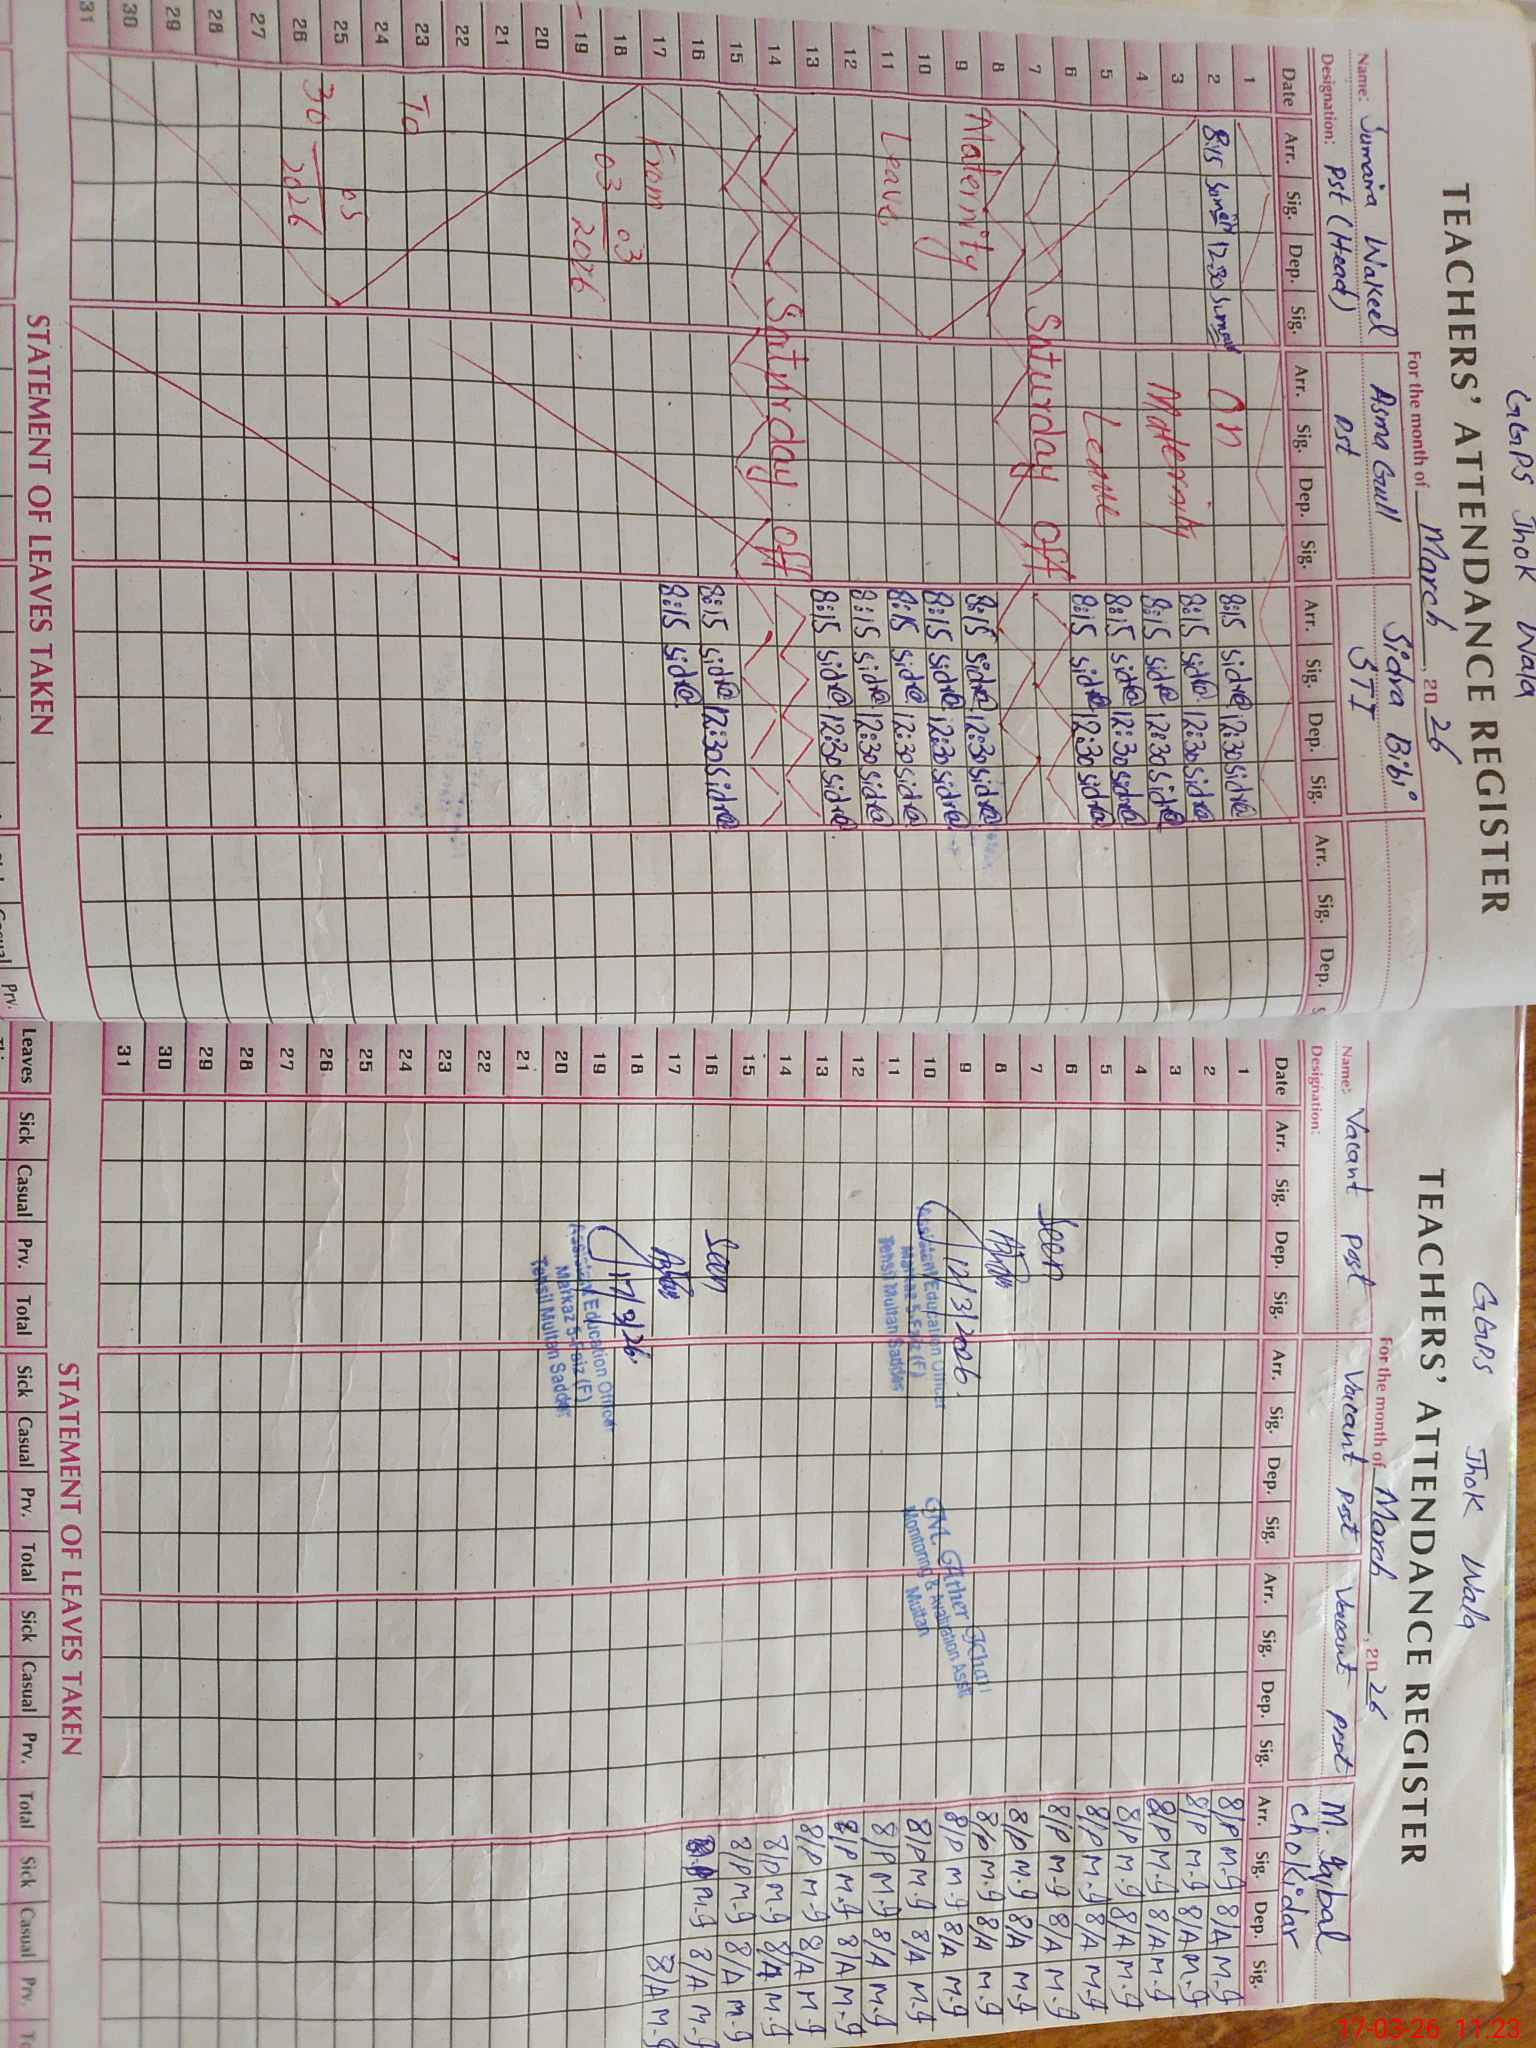 GGPS Jhok Wala
TEACHERS' ATTENDANCE REGISTER
For the month of March, 2026
Name: Sumaira Wakeel Asma Gull Sidra Bibi
Designation: PST (Head) PST STI
Date Arr. Sig. Dep. Sig. Arr. Sig. Dep. Sig. Arr. Sig. Dep. Sig. Arr. Sig. Dep. S
1 8:15 Sidra 12:30 Sidra
2 8:15 12:30 On 8:15 Sidra 12:30 Sidra
3 8:15 Sidra 12:30 Sidra
4 Maternity 8:15 Sidra 12:30 Sidra
5 Leave 8:15 Sidra 12:30 Sidra
6
7 Saturday off
8
9 Maternity 8:15 Sidra 12:30 Sidra
10 8:15 Sidra 12:30 Sidra
11 Leave 8:15 Sidra 12:30 Sidra
12 8:15 Sidra 12:30 Sidra
13 8:15 Sidra 12:30 Sidra
14 Saturday off
15
16 8:15 Sidra 12:30 Sidra
17 From 8:15 Sidra
18 03
19 03 2026
20
21
22
23 To
24
25 05
26 30 2026
27
28
29
30
31
STATEMENT OF LEAVES TAKEN
Casual Prv.
GGPS Jhok Wala
TEACHERS' ATTENDANCE REGISTER
For the month of March, 2026
Name: Vacant Post Vacant Post Vacant Post M. Iqbal
Designation: Chokidar
Date Arr. Sig. Dep. Sig. Arr. Sig. Dep. Sig. Arr. Sig. Dep. Sig. Arr. Sig. Dep. Sig.
1 8/P M.I 8/A M.I
2 8/P M.I 8/A M.I
3 8/P M.I 8/A M.I
4 8/P M.I 8/A M.I
5 8/P M.I 8/A M.I
6 Seen 8/P M.I 8/A M.I
7 8/P M.I 8/A M.I
8 8/P M.I 8/A M.I
9 12/3/2026. 8/P M.I 8/A M.I
10 8/P M.I 8/A M.I
Assistant Education Officer
Markaz 5-Faiz (F)
Tehsil Multan Saddar
Monitoring & Avaluation Asstt
Multan
11 8/P M.I 8/A M.I
12 8/P M.I 8/A M.I
13 8/P M.I 8/A M.I
14 8/P M.I 8/A M.I
15 8/P M.I 8/A M.I
16 Seen M.I 8/A M.I
17 8/A M.I
18 17/3/26.
19
20
Assistant Education Officer
Markaz 5-Faiz (F)
Tehsil Multan Saddar
21
22
23
24
25
26
27
28
29
30
31
STATEMENT OF LEAVES TAKEN
Leaves Sick Casual Prv. Total Sick Casual Prv. Total Sick Casual Prv. Total Sick Casual Prv.
17-03-26 11:23